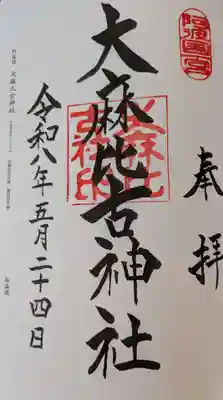 奉拝
阿波國一宮
大麻比古神社
令和八年五月二十四日
阿波国 大麻比古神社